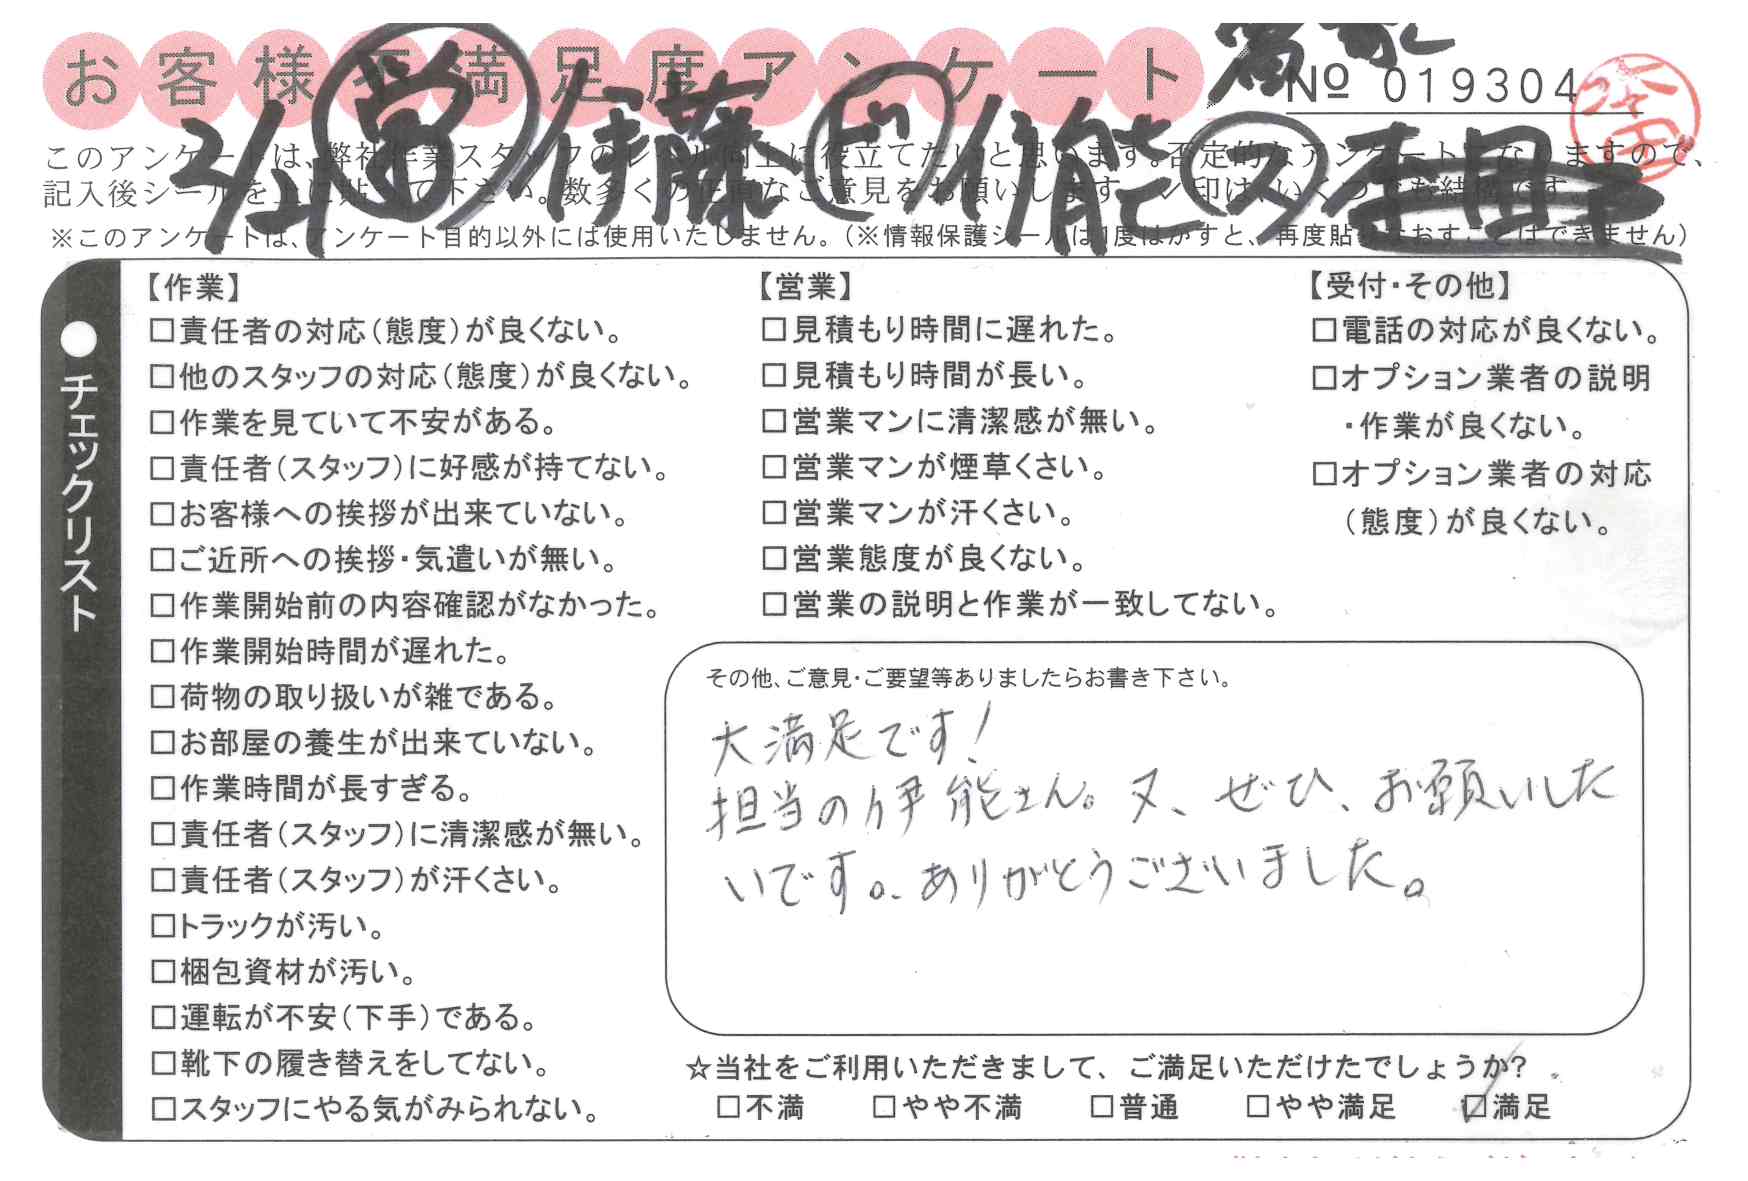 お客様不満足度アンケート
No 019304
2/21 営 伊藤 ド 伊能 ス
このアンケートは、弊社作業スタッフのレベル向上に役立てたいと思います。否定的なアンケートになりますので、
記入後シールを上に貼って下さい。数多くの正直なご意見をお願いします。レ印は、いくつでも結構です。
※このアンケートは、アンケート目的以外には使用いたしません。(※情報保護シールは1度はがすと、再度貼りなおすことはできません)
●チェックリスト
【作業】
□責任者の対応(態度)が良くない。
□他のスタッフの対応(態度)が良くない。
□作業を見ていて不安がある。
□責任者(スタッフ)に好感が持てない。
□お客様への挨拶が出来ていない。
□ご近所への挨拶・気遣いが無い。
□作業開始前の内容確認がなかった。
□作業開始時間が遅れた。
□荷物の取り扱いが雑である。
□お部屋の養生が出来ていない。
□作業時間が長すぎる。
□責任者(スタッフ)に清潔感が無い。
□責任者(スタッフ)が汗くさい。
□トラックが汚い。
□梱包資材が汚い。
□運転が不安(下手)である。
□靴下の履き替えをしてない。
□スタッフにやる気がみられない。
【営業】
□見積もり時間に遅れた。
□見積もり時間が長い。
□営業マンに清潔感が無い。
□営業マンが煙草くさい。
□営業マンが汗くさい。
□営業態度が良くない。
□営業の説明と作業が一致してない。
【受付・その他】
□電話の対応が良くない。
□オプション業者の説明
・作業が良くない。
□オプション業者の対応
(態度)が良くない。
その他、ご意見・ご要望等ありましたらお書き下さい。
大満足です!
担当の伊能さん。又、ぜひ、お願いした
いです。ありがとうございました。
☆当社をご利用いただきまして、ご満足いただけたでしょうか?
□不満 □やや不満 □普通 □やや満足 □満足